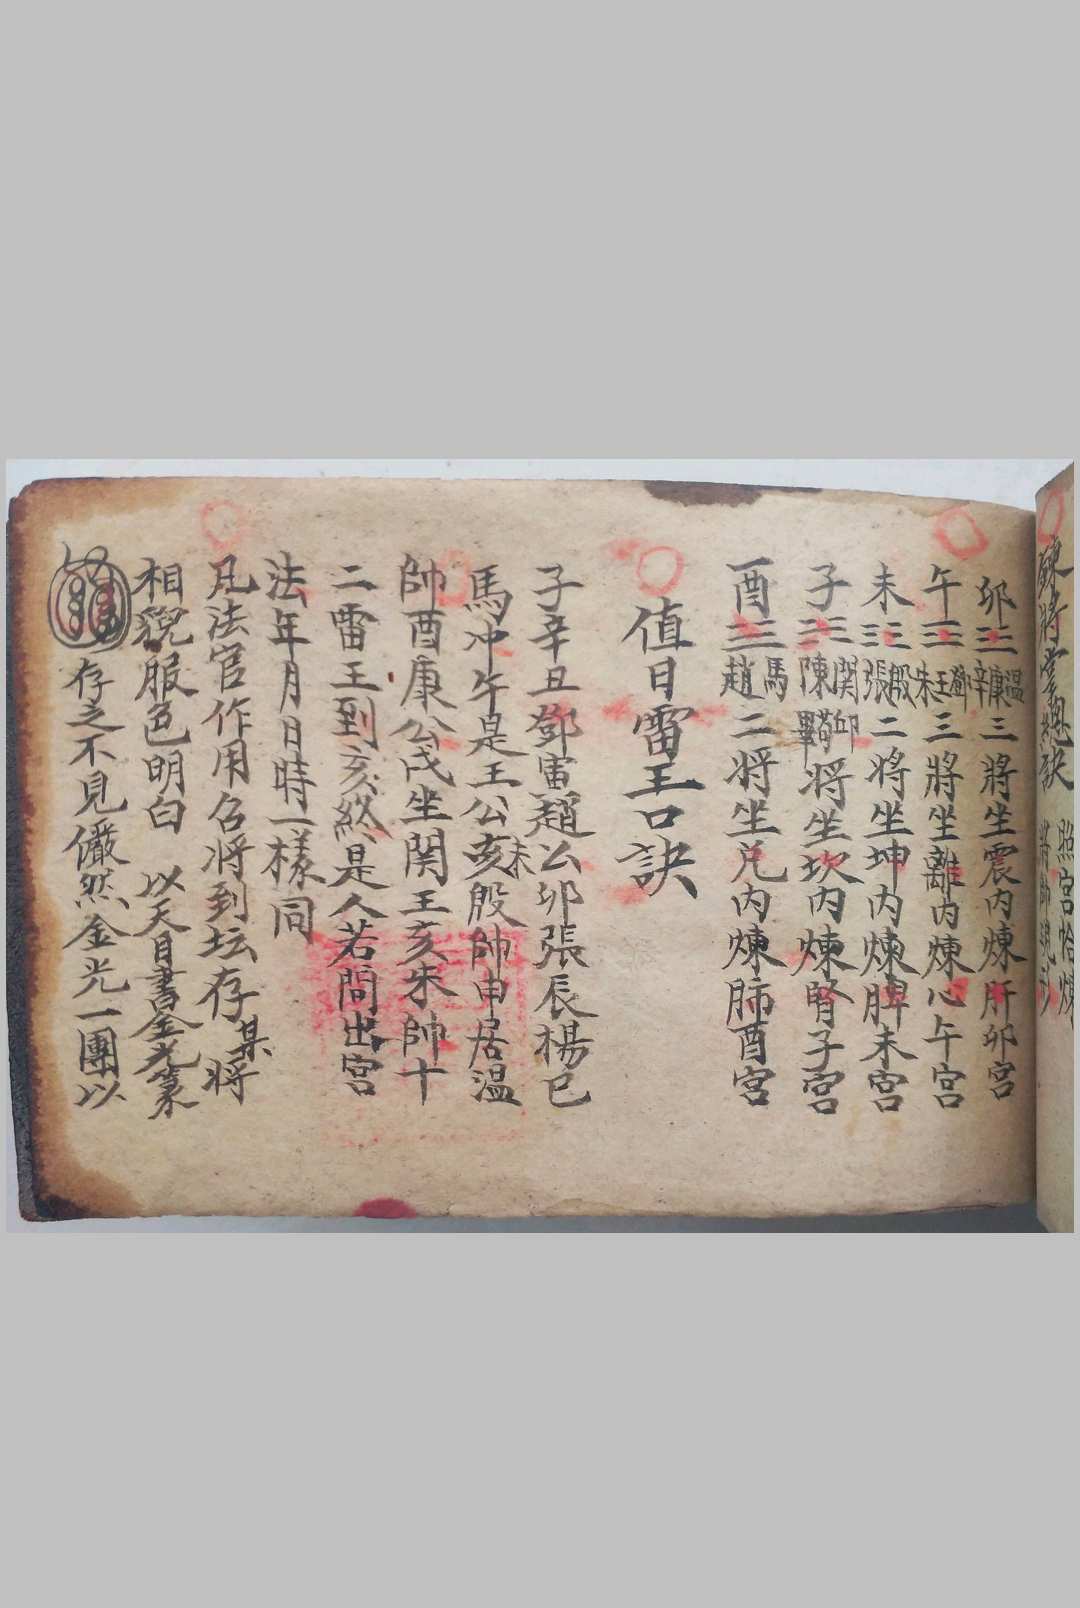 鍊將掌總訣
照宮恰煉
卯☳溫康辛三將坐震內煉肝卯宮
午☲鄧王朱三將坐離內煉心午宮
未☷殷張二將坐坤內煉脾未宮
子☵関邱陳畢將坐坎內煉腎子宮
酉☱馬趙二將坐兌內煉肺酉宮
值日雷王口訣
子辛丑鄧寅趙公卯張辰楊巳
馬冲午是王公亥未殷帥申居溫
帥酉康公戌坐関王亥朱帥十
二雷王到亥終是人若問出宮
法年月日時一樣同
凡法官作用召将到坛存某将
相貌服色明白 以天目書金光篆
存之不見儼然金光一團以